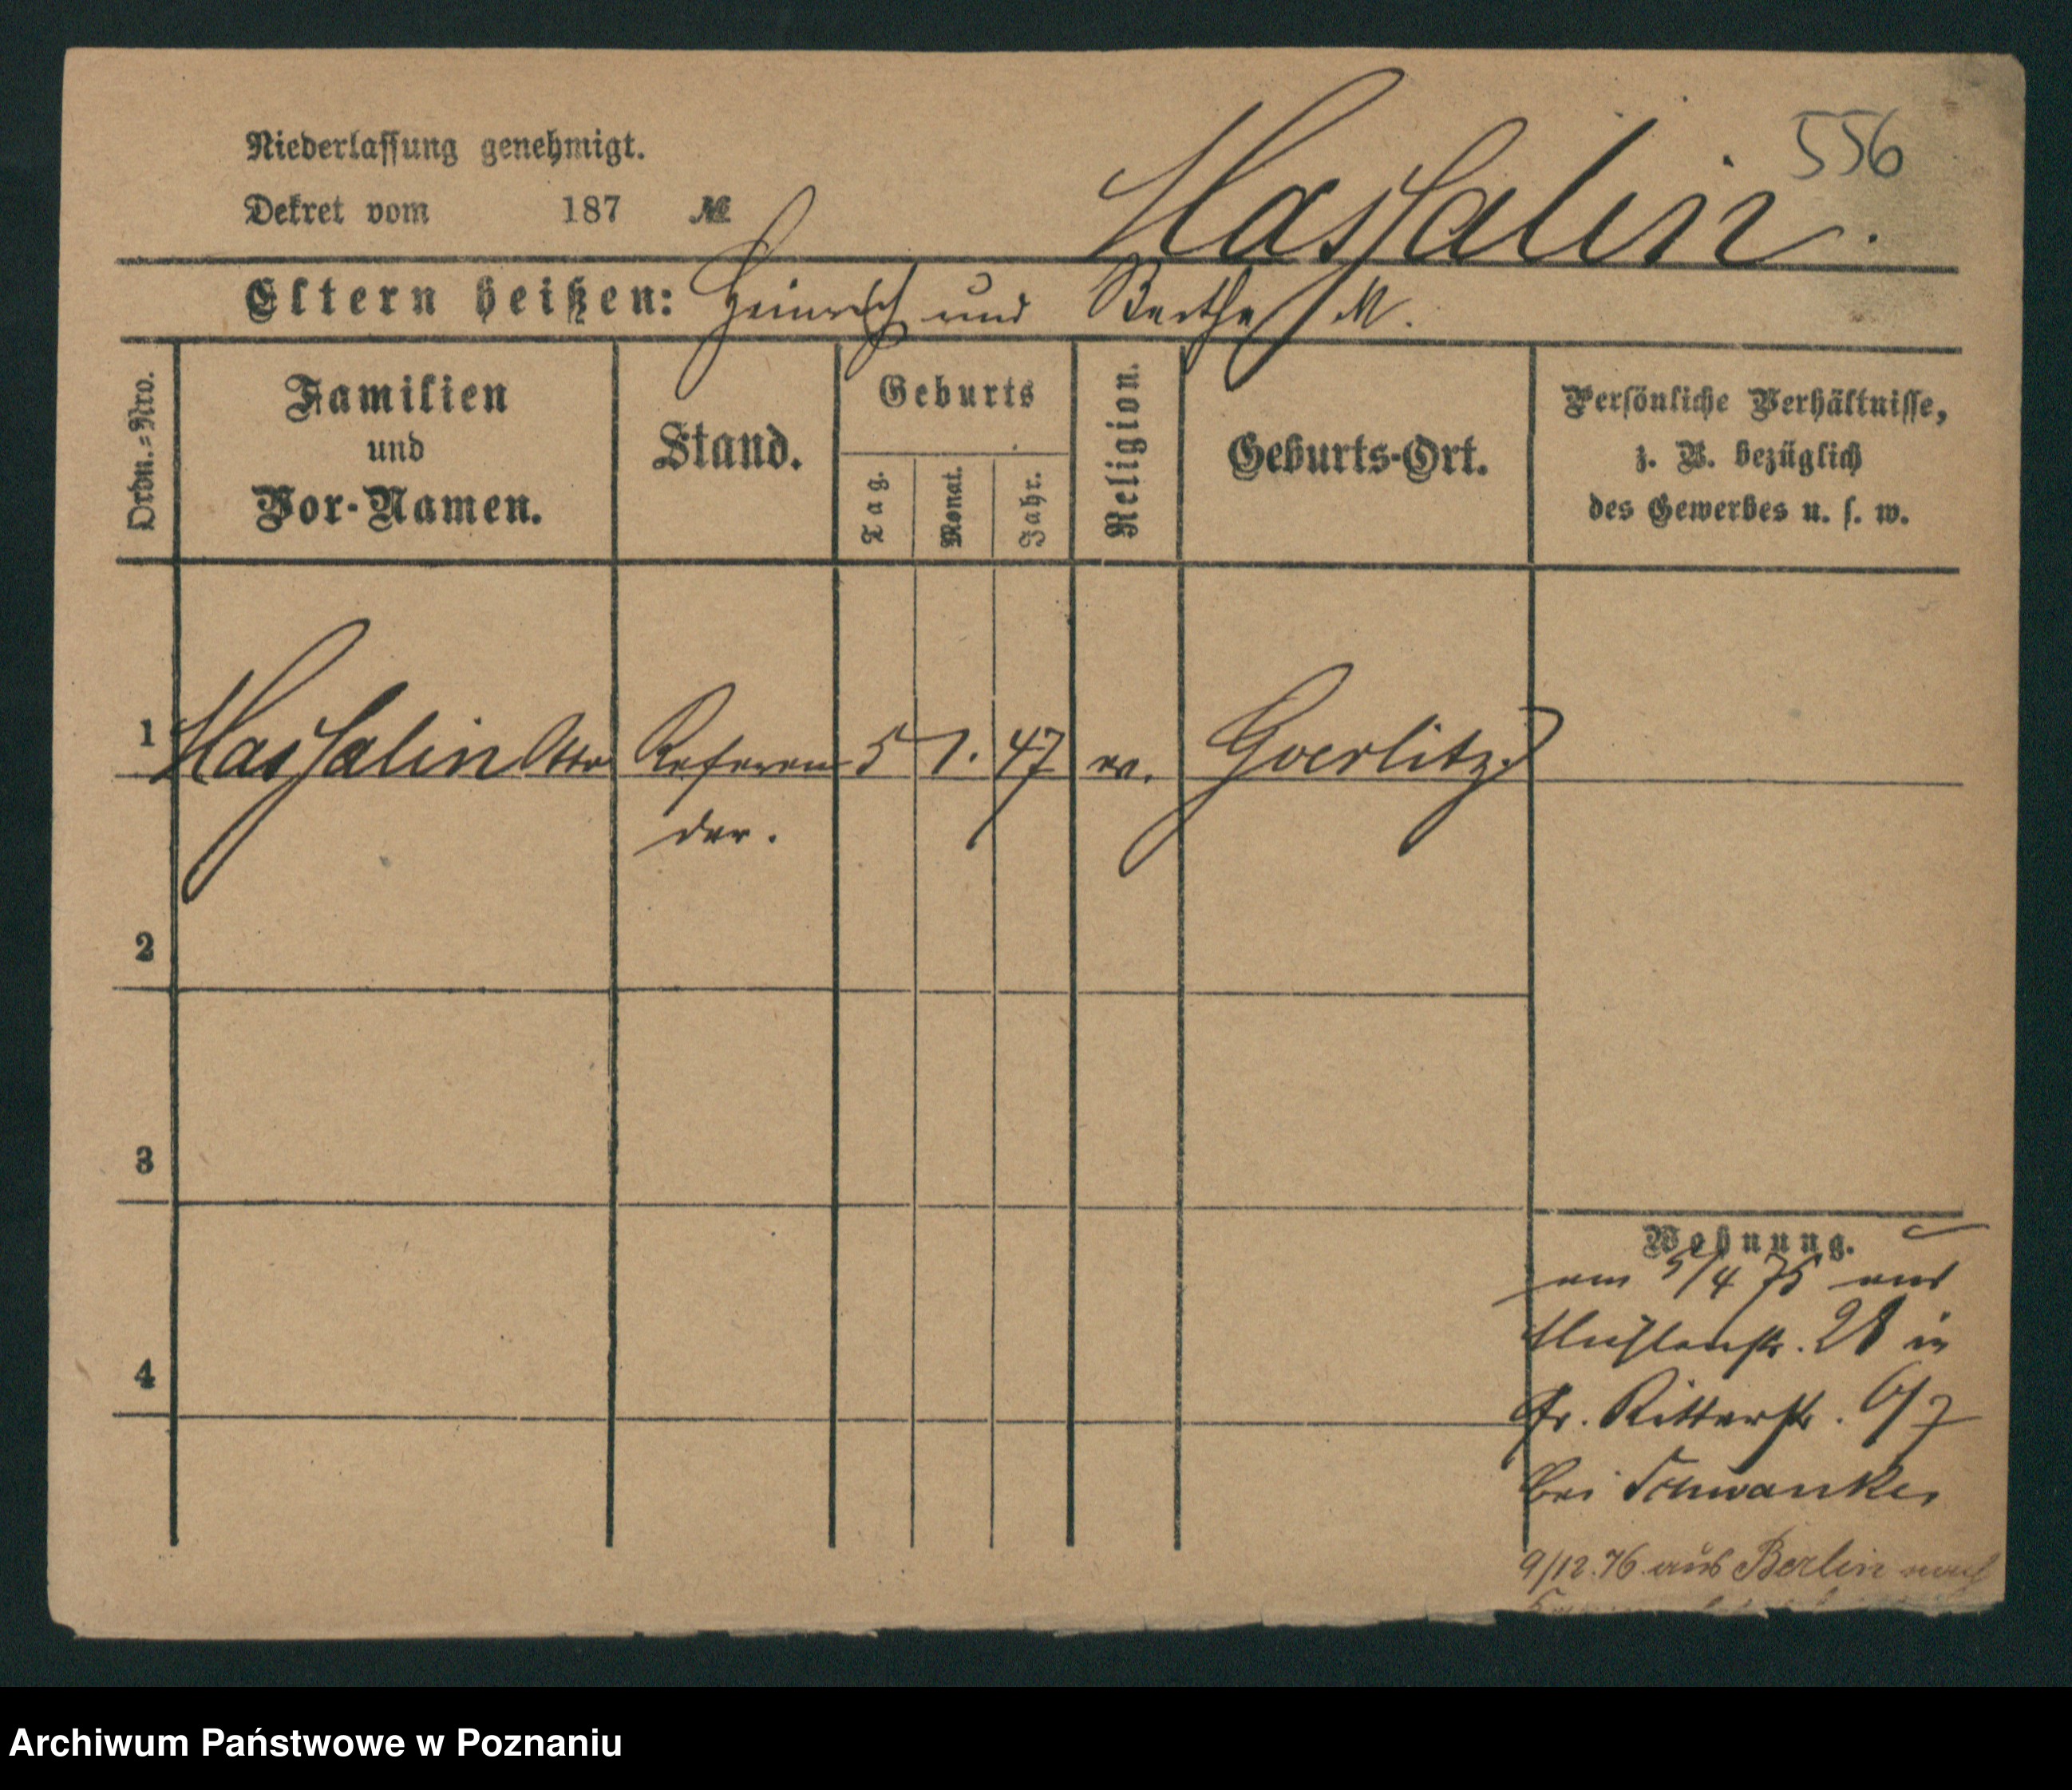 556
Niederlassung genehmigt.
Dekret vom 187 №
Hassalin.
Eltern heißen: Heinrich und Berthe M.
Ordn.=Nro.
Familien
und
Vor-Namen.
Stand.
Geburts
Tag.
Monat.
Jahr.
Religion.
Geburts-Ort.
Persönliche Verhältnisse,
z. B. bezüglich
des Gewerbes u. s. w.
1 Hassalin Otto Referen 5 1. 47 ev. Goerlitz.
dar.
2
3
4
Wohnung.
am 5/4 75 aus
Mühlenstr. 28 in
Gr. Ritterstr. 6/7
bei Schwanke.
9/12.76. aus Berlin nach
Archiwum Państwowe w Poznaniu